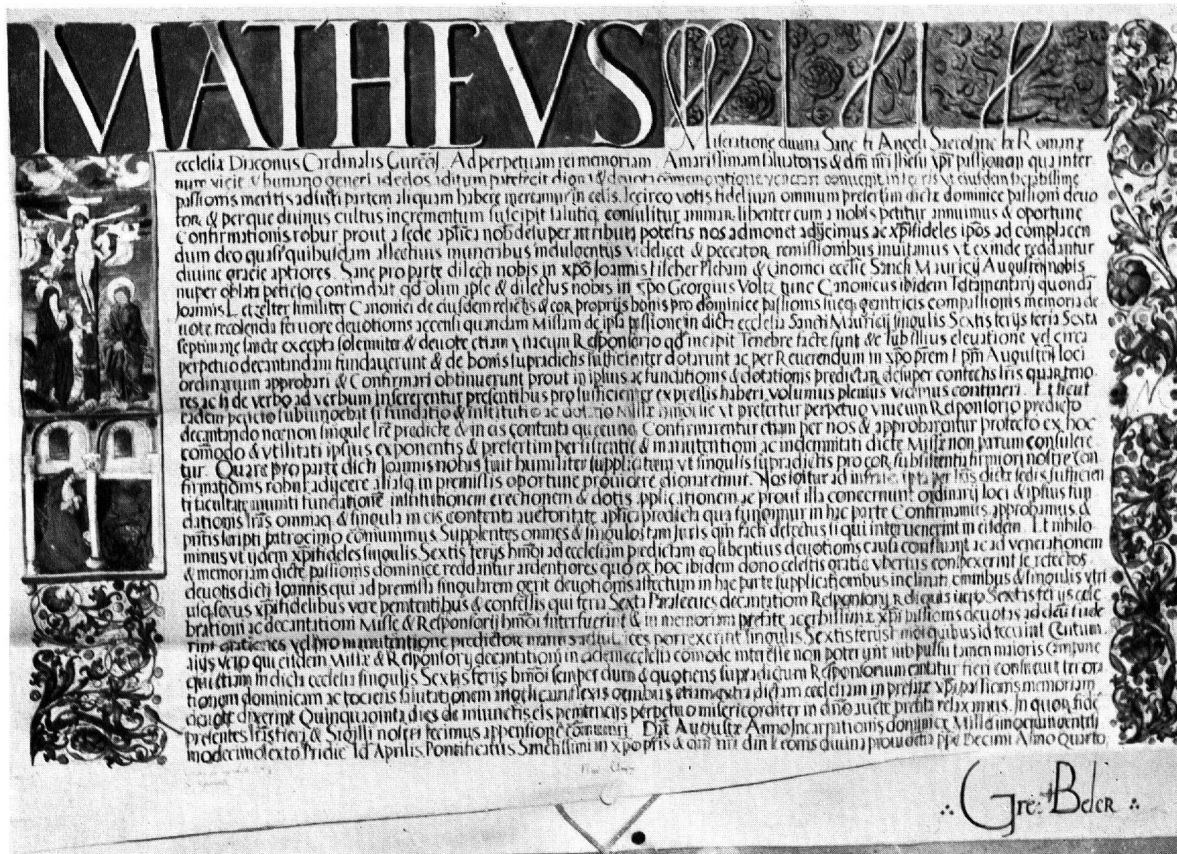 MATHEVS Miseratione divina Sancti Angeli Sacrosancte Romanę
ecclesia Diaconus Cardinalis Gurceñ. Ad perpetuam rei memoriam. Amarissimam saluatoris & dm nri Ihesu xpi passionem qua inter
nure vicit & humano generi adedos aditum patefecit digna & deuota comemoratione venerari convenit in terris vt eiusdem sacratissime
passionis meritis adiuti partem aliquam habere mereamur in celis. Iccirco votis fidelium omnium presertim dictę dominice passioni deuo
tor & per que diuinus cultus incrementum suscipit salutiq consulitur animar libenter cum a nobis petitur annuimus & oportune
Confirmationis robur prout a sede aplica nob desuper attributa potestas nos admonet adijcimus ac xpifideles ipos ad complacen
dum deo quasi quibusdam allectiuis muneribus indulgentijs videlicet & peccator remissionibus inuitamus vt exinde reddantur
diuine gracie aptiores. Sane pro parte dilecti nobis in xpo Joannis Fischer Plebani & Canonici ecctie Sancti Mauricij Augusteñ nobis
nuper oblata peticio continebat qd olim ipse & dilectus nobis in xpo Georgius Voltz tunc Canonicus ibidem Testamentarij quondã
Joannis Letzelter similiter Canonici de eiusdem relictis & eor proprijs bonis pro dominice passionis sueq genitricis compassionis memoria de
uote recolenda feruore deuotionis accensi quandam Missam de ipsa passione in dicta ecclesia Sancti Mauricij singulis Sextis ferijs feria Sexta
septimane sancte excepta solemniter & deuote etiam vnacum Responsorio qd incipit Tenebre facte sunt &c sub illius eleuatione vel circa
perpetuo decantandam fundauerunt & de bonis supradictis sufficienter dotarunt ac per Reuerendum in xpo prem dnm Augusteñ loci
ordinarium approbari & Confirmari obtinuerunt prout in ipsius ac fundationis & dotationis predictar desuper confectis lris quar teno
res ac si de verbo ad verbum insererentur presentibus pro sufficienter expressis haberi volumus plenius vidimus contineri. Et sicut
eadem peticio subiungebat si fundatio & institutio ac dotatio Missę hmoi sic vt prefertur perpetuo vnacum Responsorio predicto
decantande necnon singule lrẽ predicte & in eis contenta quecunq Confirmarentur etiam per nos & approbarentur profecto ex hoc
comodo & vtilitati ipsius exponentis & presertim persistentie & manutentioni ac indemnitati dicte Missę non parum consulere
tur. Quare pro parte dicti Joannis nobis fuit humiliter supplicatum vt singulis supradictis pro eor subsistentia firmiori nostre Con
firmationis robur adijcere aliasq in premissis oportune prouidere dignaremur. Nos igitur ad infrascripta per lras dicte sedis sufficien
ti facultate muniti fundationẽ institutionem erectionem & dotis applicationem ac prout illa concernunt ordinarij loci & ipsius fun
dationis lrãs omniaq & singula in eis contenta auctoritate aplica predicta qua fungimur in hac parte Confirmamus approbamus &
pñtis scripti patrocinio comunimus Supplentes omnes & singulos tam Juris qm facti defectus si qui interuenerint in eisdem. Et nihilo
minus vt ijdem xpifideles singulis Sextis ferijs hmoi ad ecclesiam predictam eo libentius deuotionis causa confluant ac ad venerationem
& memoriam dicte passionis dominice reddantur ardentiores quo ex hoc ibidem dono celestis gratie vberius conspexerint se refectos
deuotis dicti Joannis qui ad premissa singularem gerit deuotionis affectum in hac parte supplicationibus inclinati omnibus & singulis vtri
usq sexus xpifidelibus vere penitentibus & confessis qui feria Sexta Parasceues decantationi Responsorij reliquis vero Sextis ferijs cele
brationi ac decantationi Missę & Responsorij hmoi interfuerint & in memoriam prefate acerbissimę xpi passionis deuotas ad deũ fude
rint orationes vel pro manutentione predictor manus adiutrices porrexerint singulis Sextis ferijs hmoi quibus id fecerint Centum.
alijs vero qui eidem Missę & Responsorij decantationi in eadem ecclesia comode interesse non poterunt sub pulsu tamen maioris Campane
que etiam in dicta ecclesia singulis Sextis ferijs hmoi semper dum & quotiens supradictum Responsorium cantatur fieri consueuit ter ora
tionem dominicam ac tociens salutationem angelicam flexis genibus etiam extra dictam ecclesiam in prefate xpi passionis memoriam
deuote dixerint Quinquaginta dies de iniunctis eis penitencijs perpetuo misericorditer in dño aucte prefata relaxamus. In quor fidẽ
presentes lras fieri & Sigilli nostri fecimus appensione cõmuniri. Dat Augustę Anno Incarnationis dominicę Millesimoquingentesi
modecimosexto Pridie Id Aprilis Pontificatus Sanctissimi in xpo pris & dni nri dni Leonis diuina prouidẽtia ppe Decimi Anno Quarto
∴ Gre: Beler ∴